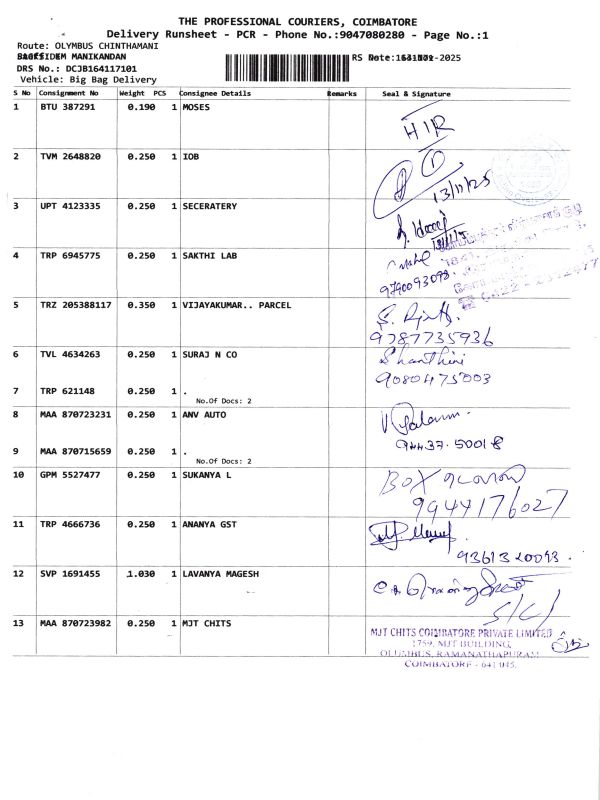 THE PROFESSIONAL COURIERS, COIMBATORE
Delivery Runsheet - PCR - Phone No.:9047080280 - Page No.:1
Route: OLYMBUS CHINTHAMANI
MANIKANDAN
RS Date: -2025
DRS No.: DCJB164117101
Vehicle: Big Bag Delivery
S No Consignment No Weight PCS Consignee Details Remarks Seal & Signature
1 BTU 387291 0.190 1 MOSES HIR
2 TVM 2648820 0.250 1 IOB 13/11/25
3 UPT 4123335 0.250 1 SECERATERY
4 TRP 6945775 0.250 1 SAKTHI LAB 9790093098
5 TRZ 205388117 0.350 1 VIJAYAKUMAR.. PARCEL
9787735936
6 TVL 4634263 0.250 1 SURAJ N CO Shanthini
9080475003
7 TRP 621148 0.250 1 .
No.Of Docs: 2
8 MAA 870723231 0.250 1 ANV AUTO
94437-50018
9 MAA 870715659 0.250 1 .
No.Of Docs: 2
10 GPM 5527477 0.250 1 SUKANYA L BOX
9944176027
11 TRP 4666736 0.250 1 ANANYA GST
9361320093.
12 SVP 1691455 1.030 1 LAVANYA MAGESH
S/C/
13 MAA 870723982 0.250 1 MJT CHITS
MJT CHITS COIMBATORE PRIVATE LIMITED
1759, MJT BUILDING,
OLUMBUS, RAMANATHAPURAM
COIMBATORE - 641 045.